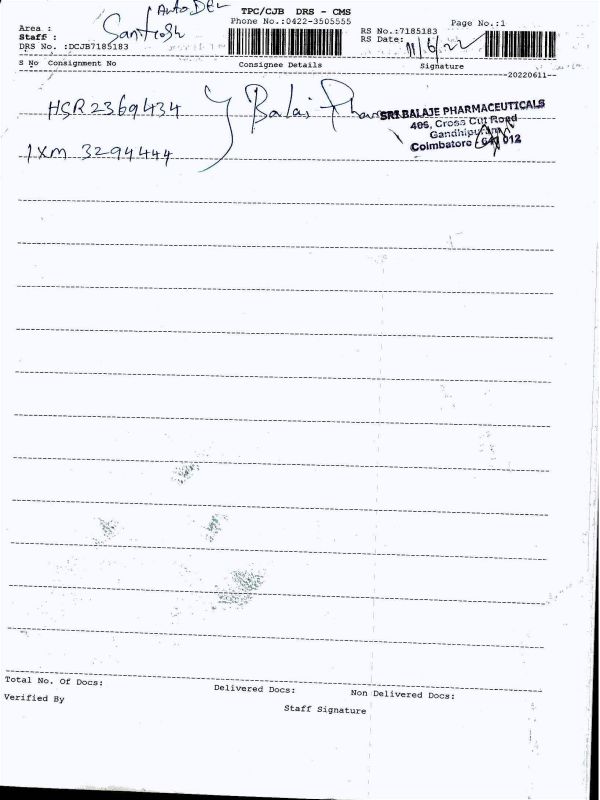 Auto DEL
TPC/CJB DRS - CMS
Phone No.:0422-3505555
Page No.:1
Area :
Staff : Santhosh
DRS No. :DCJB7185183
RS No.:7185183
RS Date: 11/6/22
S No Consignment No Consignee Details Signature
--20220611--
HSR2369434 Balai Phar
SRI BALAJE PHARMACEUTICALS
406, Cross Cut Road
Gandhipuram
Coimbatore - 641 012
1XM 3294444
Total No. Of Docs: Delivered Docs: Non Delivered Docs:
Verified By Staff Signature